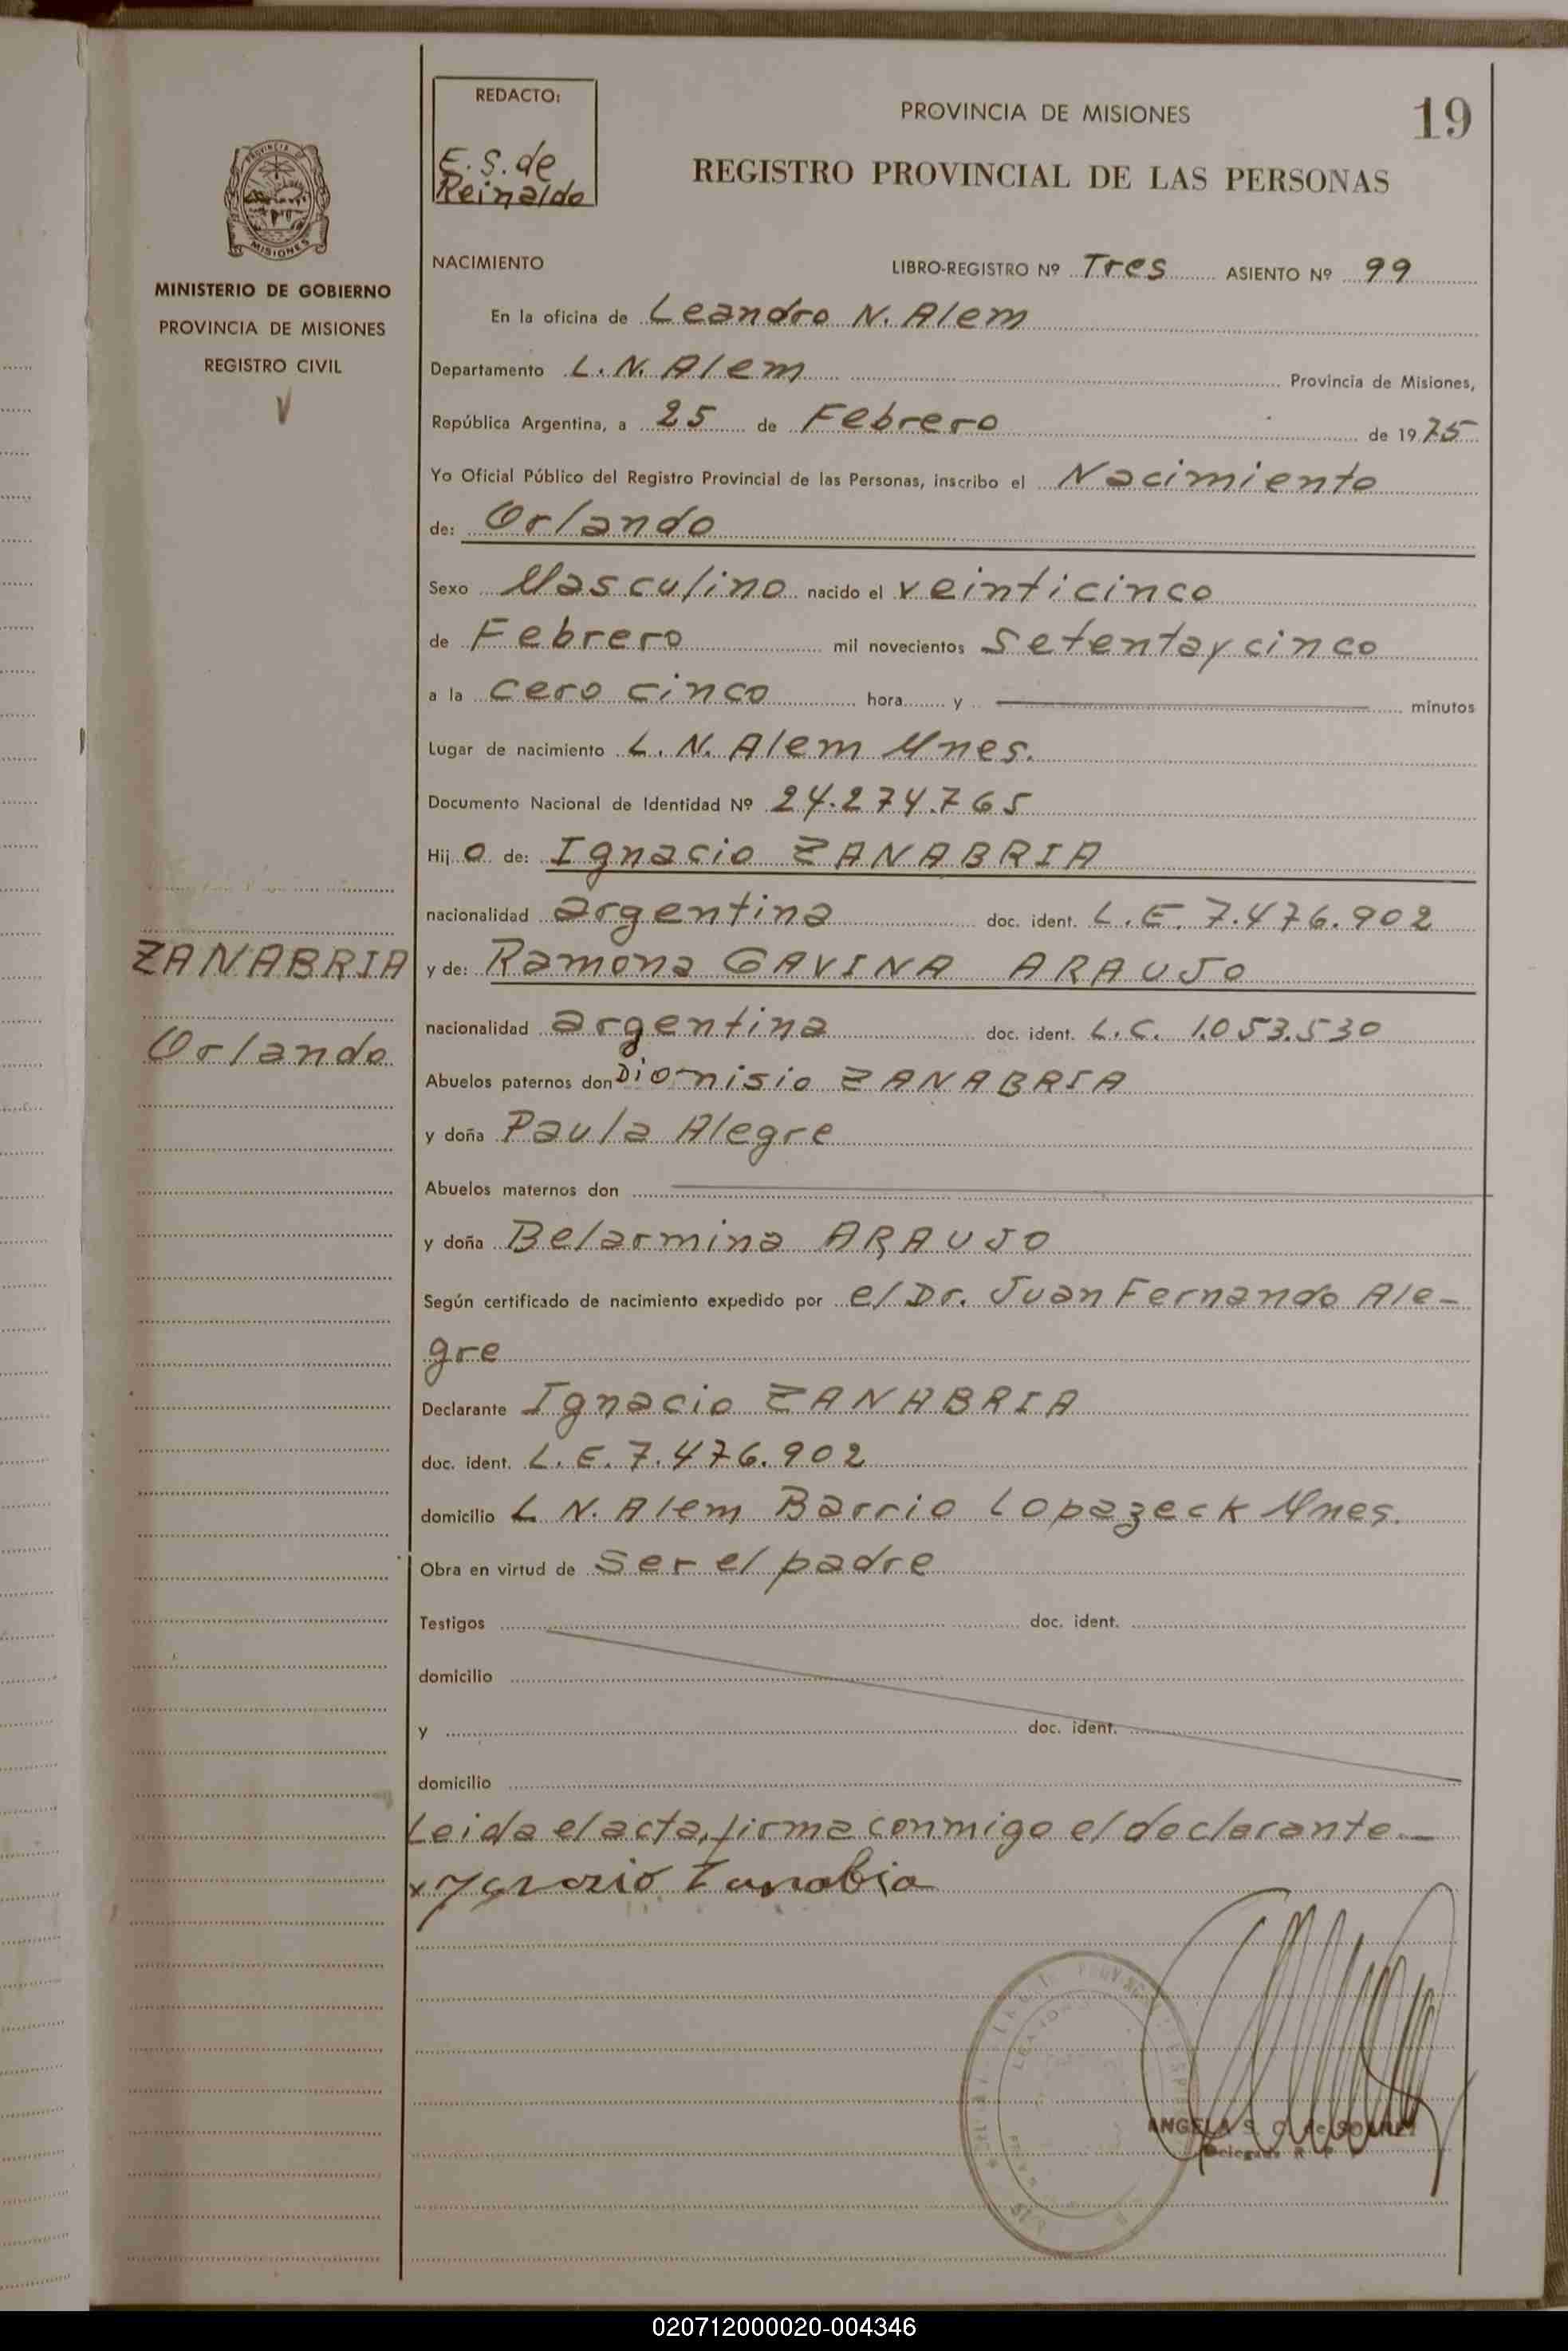 REDACTO:
E. S. de
Reinaldo
PROVINCIA DE MISIONES
19
REGISTRO PROVINCIAL DE LAS PERSONAS
MISIONES
MINISTERIO DE GOBIERNO
PROVINCIA DE MISIONES
REGISTRO CIVIL
NACIMIENTO LIBRO-REGISTRO Nº Tres ASIENTO Nº 99
En la oficina de Leandro N. Alem
Departamento L. N. Alem Provincia de Misiones,
República Argentina, a 25 de Febrero de 1975
Yo Oficial Público del Registro Provincial de las Personas, inscribo el Nacimiento
de: Orlando
Sexo Masculino nacido el veinticinco
de Febrero mil novecientos Setentay cinco
a la cero cinco hora y minutos
Lugar de nacimiento L. N. Alem Mnes.
Documento Nacional de Identidad Nº 24.274.765
Hij o de: Ignacio ZANABRIA
nacionalidad argentina doc. ident. L. E. 7.476.902
ZANABRIA
y de: Ramona GAVINA ARAUJO
nacionalidad argentina doc. ident. L.C. 1.053.530
Orlando
Abuelos paternos don Dionisio ZANABRIA
y doña Paula Alegre
Abuelos maternos don
y doña Belarmina ARAUJO
Según certificado de nacimiento expedido por el Dr. Juan Fernando Ale-
gre
Declarante Ignacio ZANABRIA
doc. ident. L. E. 7.476.902
domicilio L N. Alem Barrio Lopazeck Mnes.
Obra en virtud de Ser el padre
Testigos doc. ident.
domicilio
y doc. ident.
domicilio
Leida el acta, firma conmigo el declarante.—
x Ignazio Zanabia
ANGELA S. C. de
Delegada R. P.
020712000020-004346